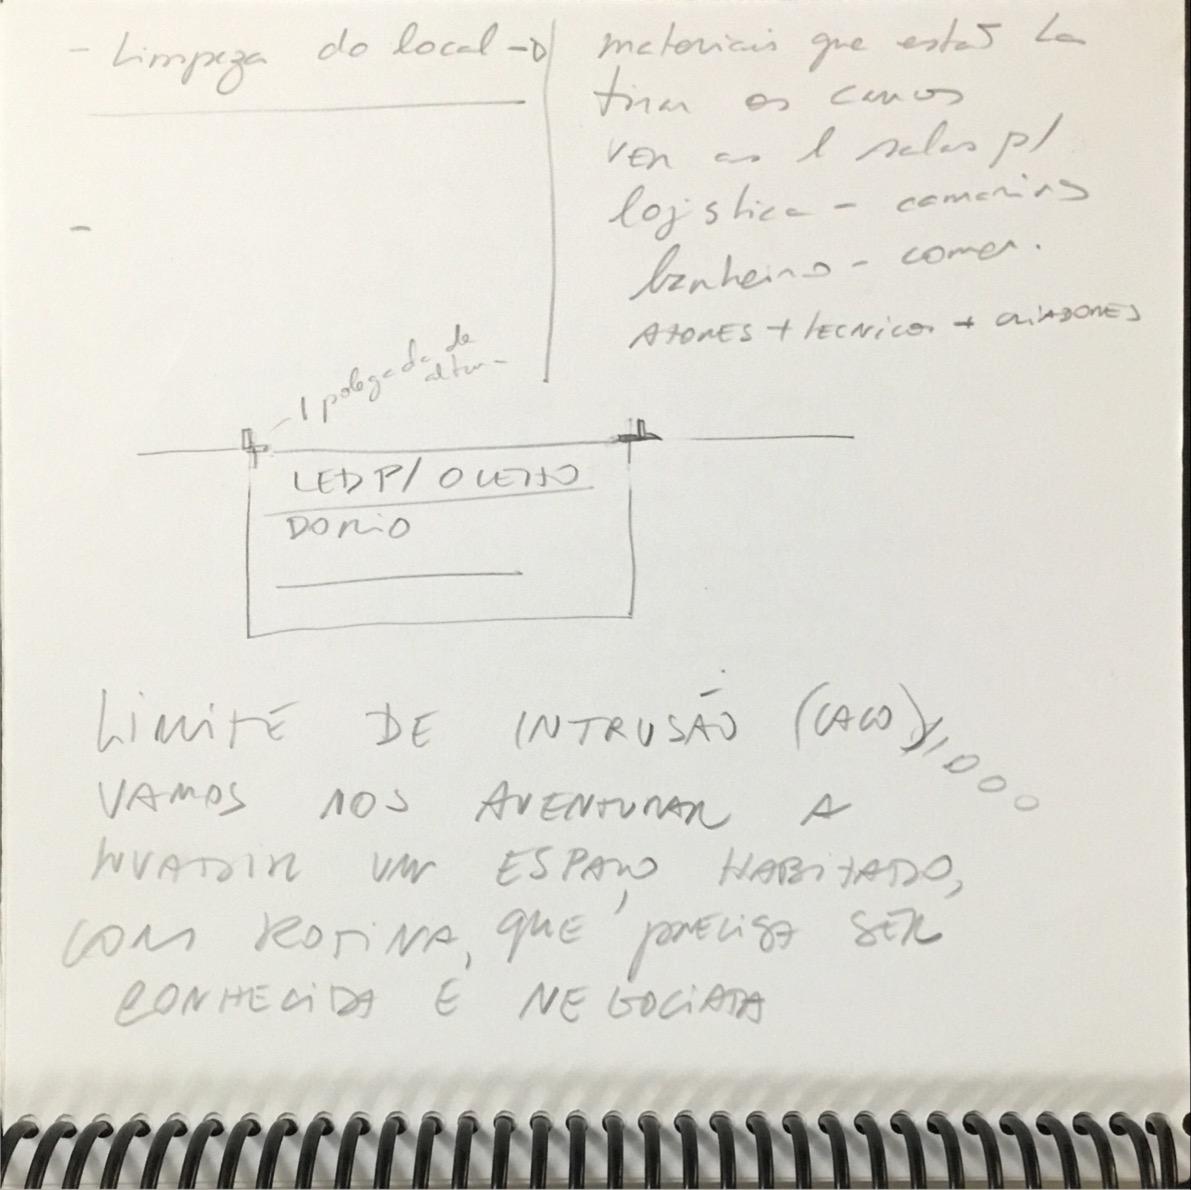 - Limpeza do local
materiais que estão lá
tirar os canos
ver as salas p/
logistica - camarins
banheiro - comer.
ATORES + TECNICOS + CRIADORES
1 polegada de
altura
LED P/ O LEITO
DO RIO
LIMITE DE INTRUSÃO (CACO)
VAMOS NOS AVENTURAR A
INVADIR UM ESPAÇO HABITADO,
COM ROTINA, QUE PRECISA SER
CONHECIDA E NEGOCIADA